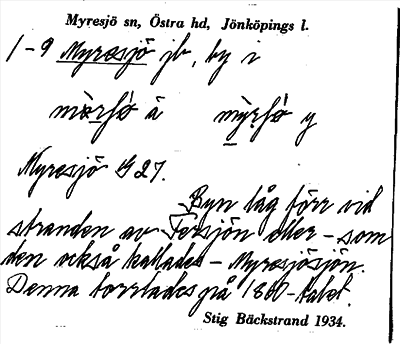 Myresjö sn, Östra hd, Jönköpings l.
1-9 Myresjö jb, by i
mòrʃø å mỳrʃø y
Myresjö G 27.
Byn låg förr vid
stranden av Torsjön eller - som
den också kallades - Myresjösjön.
Denna torrlades på 1800-talet.
Stig Bäckstrand 1934.